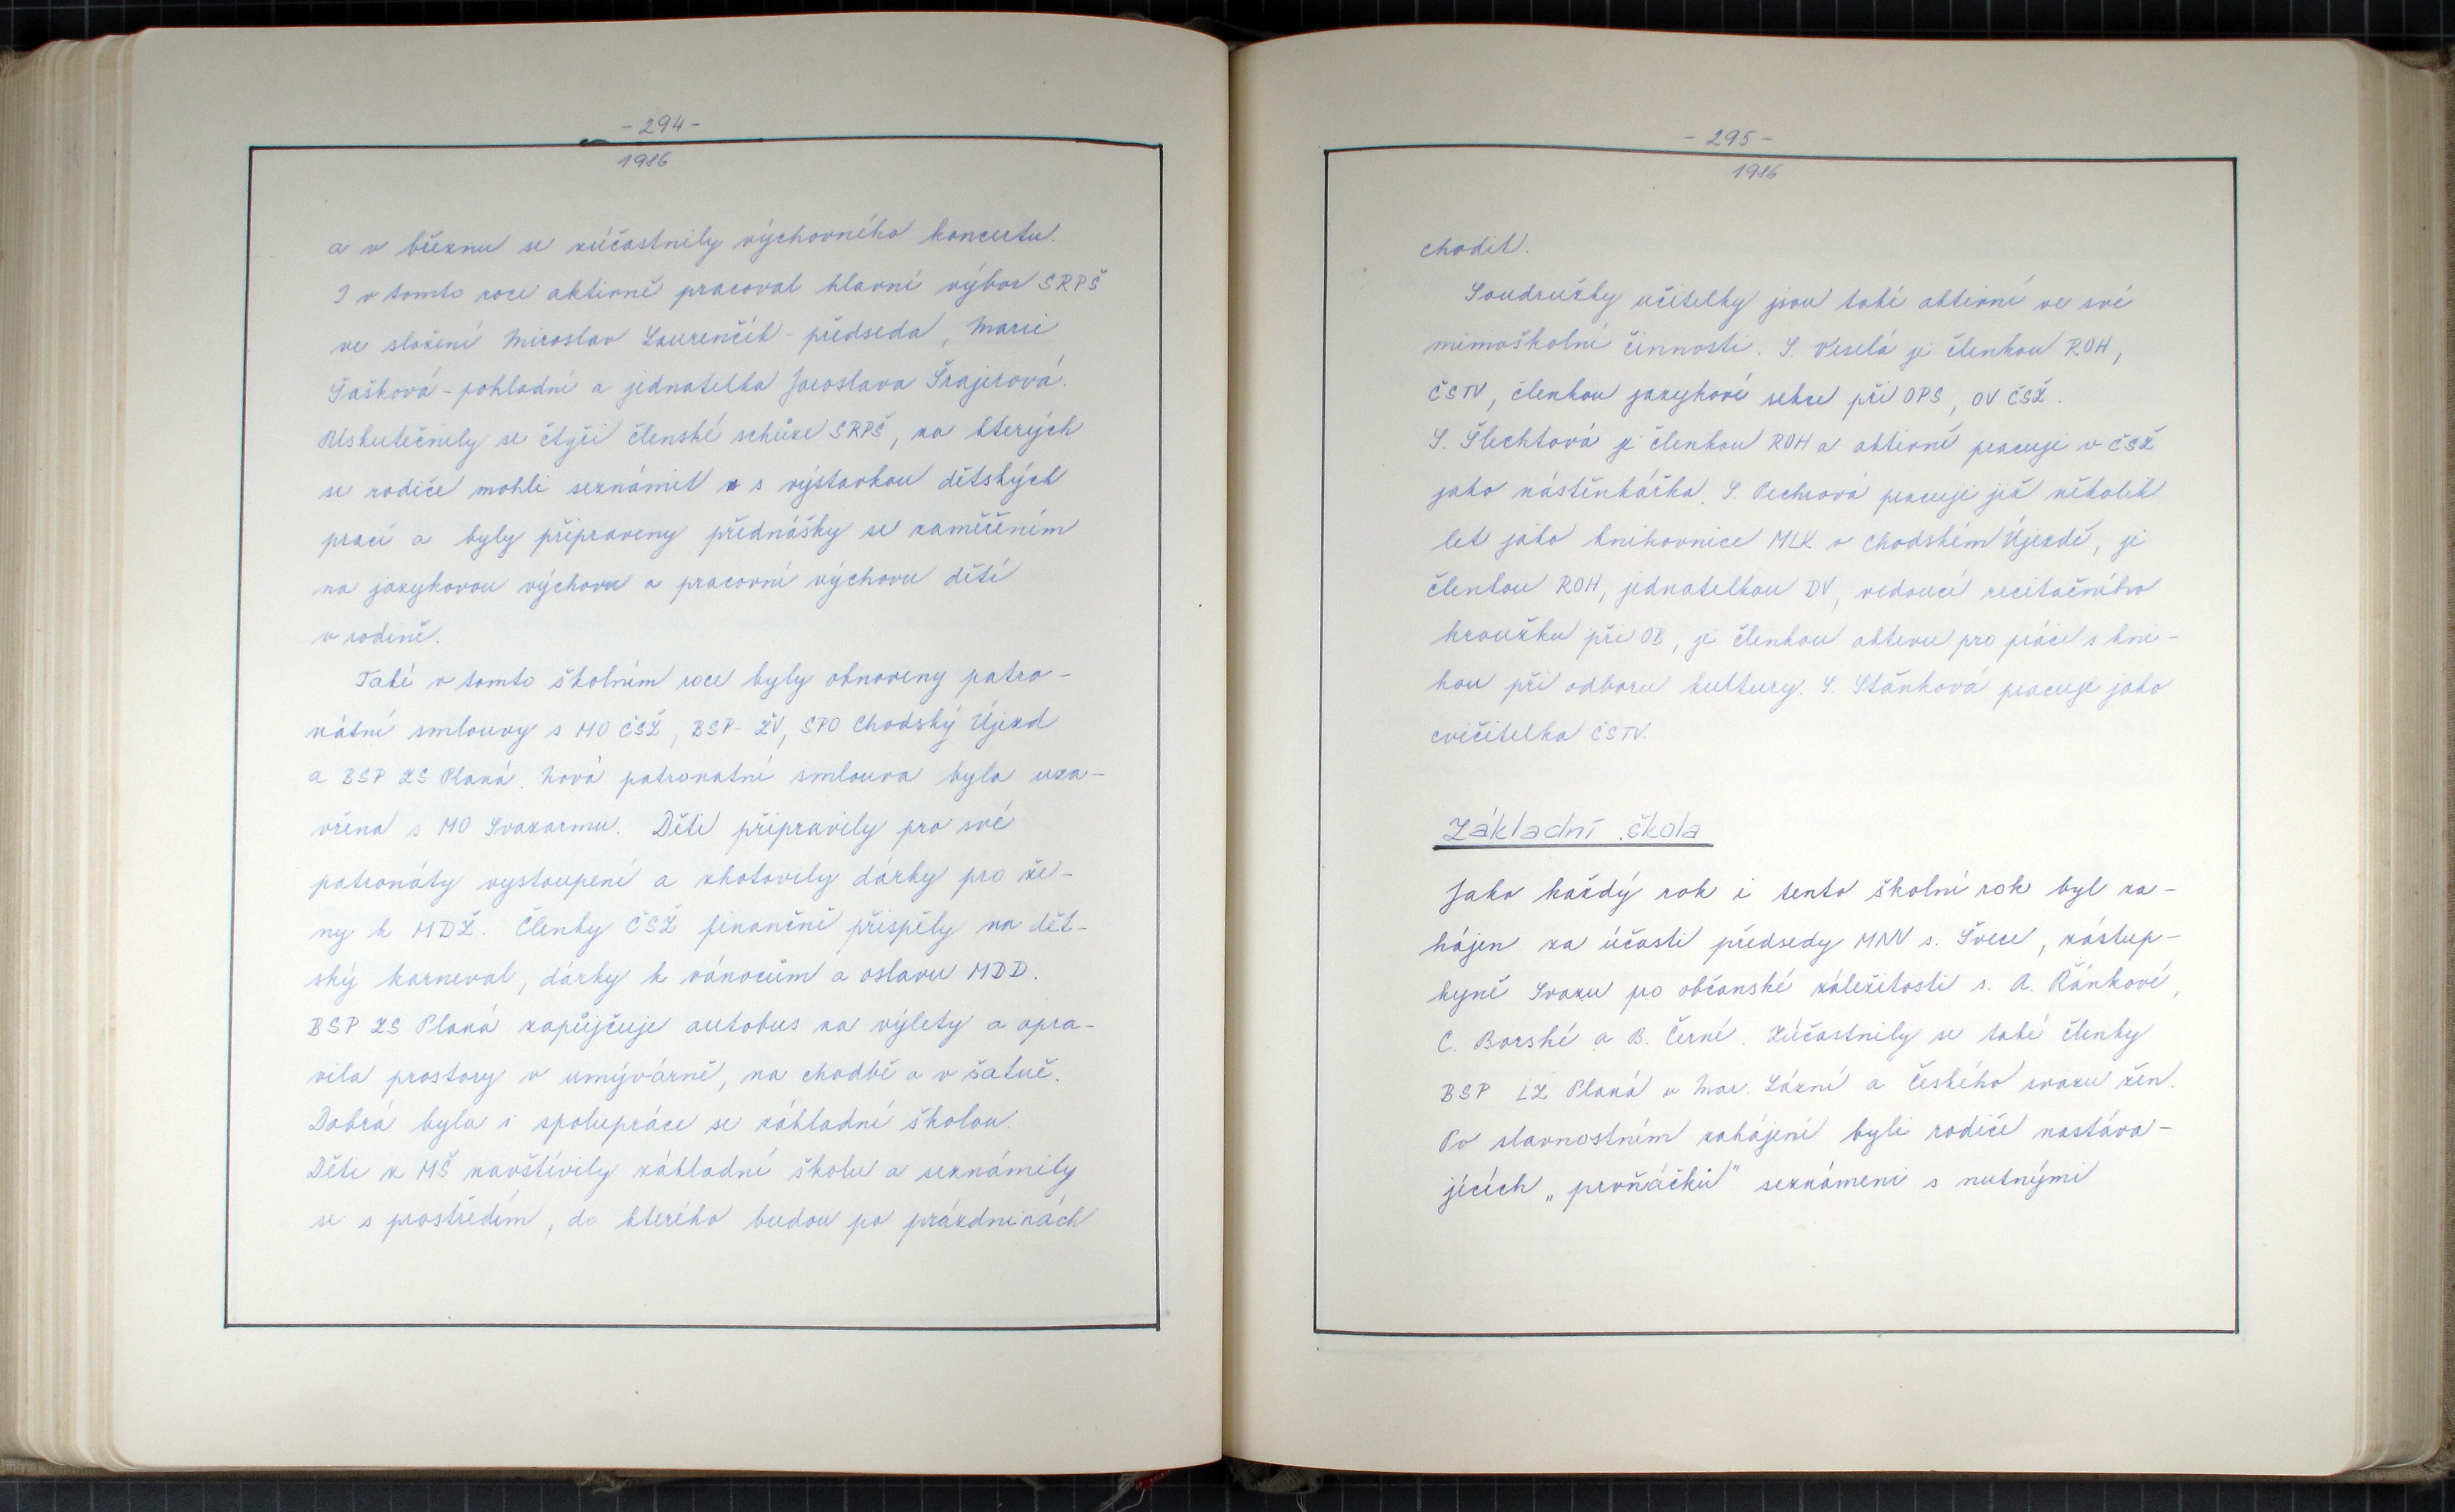 - 294 -
1986
a v březnu se zúčastnily výchovného koncertu.
I v tomto roce aktivně pracoval hlavní výbor SRPŠ
ve složení Miroslav Laurenčík - předseda, Marie
Šašková - pohladní a jednatelka Jaroslava Šrajerová.
Uskutečnily se čtyři členské schůze SRPŠ, na kterých
se rodiče mohli seznámit s výstavkou dětských
prací a byly připraveny přednášky se zaměřením
na jazykovou výchovu a pracovní výchovu dětí
v rodině.
Také v tomto školním roce byly obnoveny patro-
nátní smlouvy s MO ČSŽ, BSP - ŽV, SPO Chodský Újezd
a BSP ZS Planá. Nová patronatní smlouva byla uza-
vřena s MO Svazarmu. Děti připravily pro své
patronáty vystoupení a zhotovily dárky pro že-
ny k MDŽ. Členky ČSŽ finančně přispěly na dět-
ský karneval, dárky k vánocům a oslavu MDD.
BSP ZS Planá zapůjčuje autobus na výlety a opra-
vila prostory v umývárně, na chodbě a v šatně.
Dobrá byla i spolupráce se základní školou.
Děti z MŠ navštívily základní školu a seznámily
se s prostředím, do kterého budou po prázdninách
- 295 -
1986
chodit.
Soudružky učitelky jsou také aktivní ve své
mimoškolní činnosti. S. Veselá je členkou ROH,
ČSTV, členkou jazykové sekce při OPS, OV ČSŽ.
S. Šlechtová je členkou ROH a aktivně pracuje v ČSŽ
jako nástěnkářka. S. Pechrová pracuje již několik
let jako knihovnice MLK v Chodském Újezdě, je
členkou ROH, jednatelkou DV, vedoucí recitačního
kroužku při OB, je členkou aktivu pro práci s kni-
hou při odboru kultury. S. Staňková pracuje jako
cvičitelka ČSTV.
Základní škola
Jako každý rok i tento školní rok byl za-
hájen za účasti předsedy MNV s. Švece, zástup-
kyně Svazu pro občanské záležitosti s. A. Řánkové,
C. Borské a B. Černé. Zúčastnily se také členky
BSP LZ Planá u Mar. Lázní a Českého svazu žen.
Po slavnostním zahájení byli rodiče nastáva-
jících „prvňáčků" seznámeni s nutnými